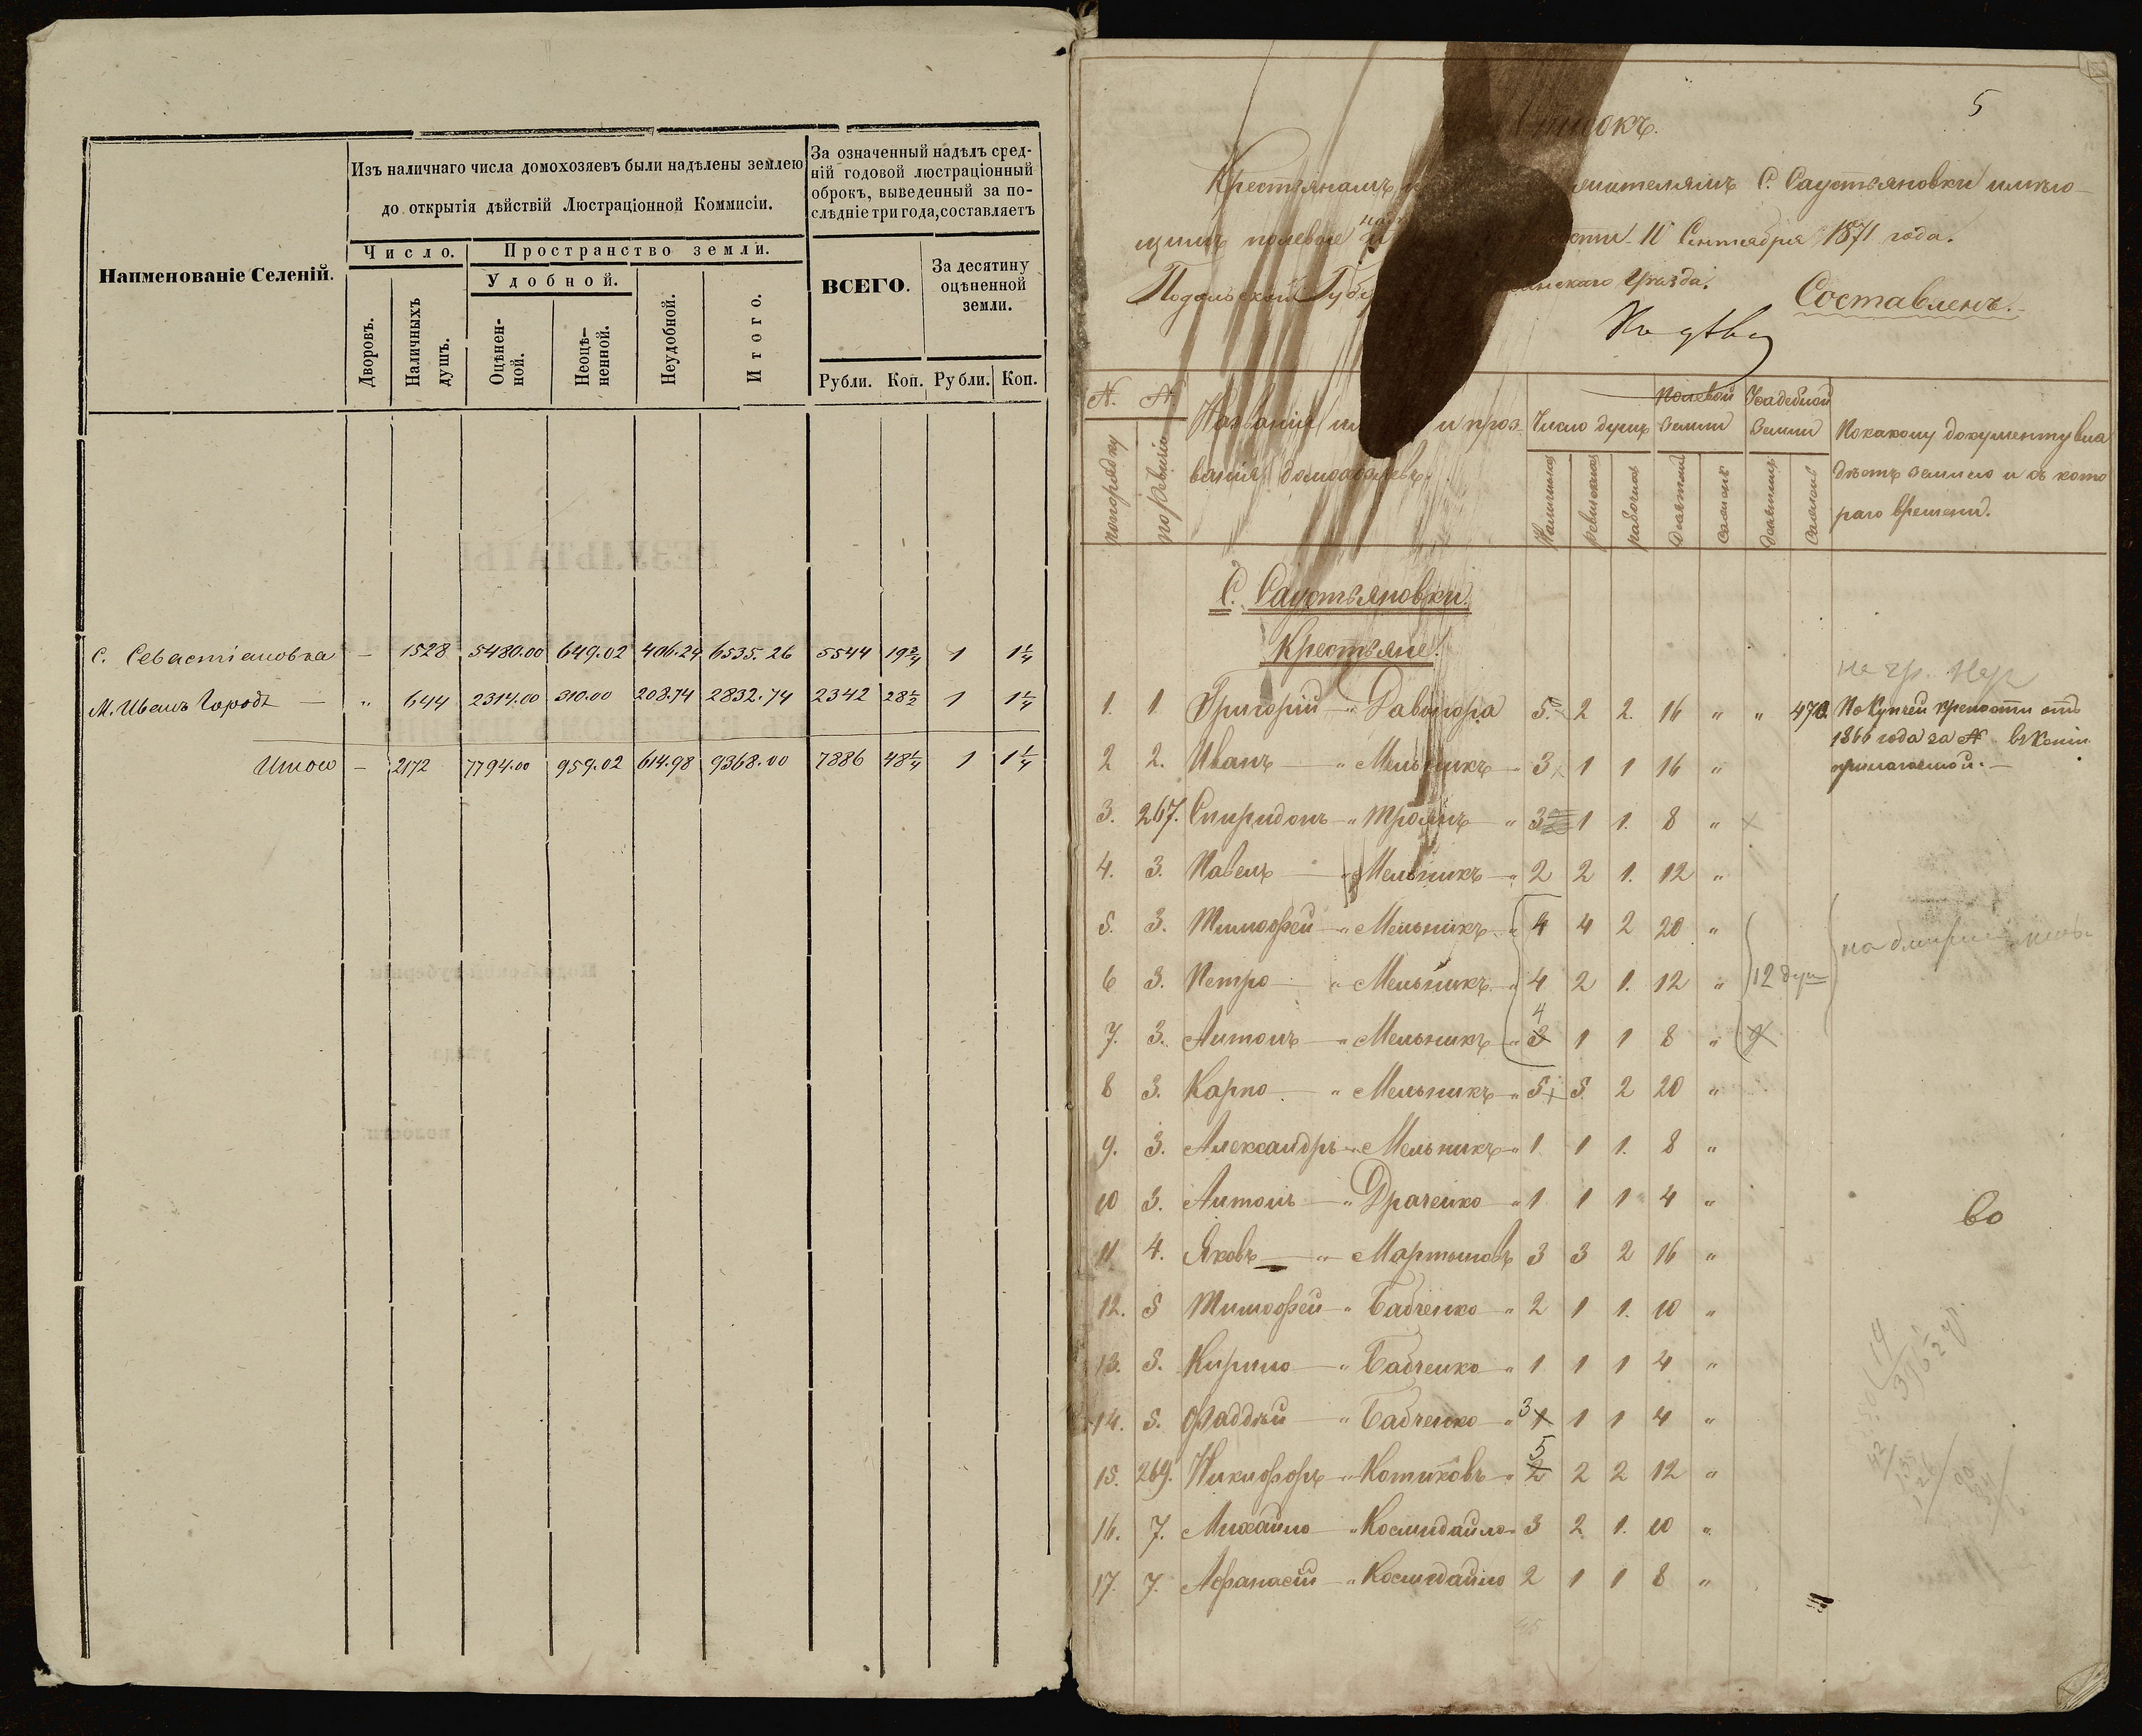 Наименованіе Селеній.
Изъ наличнаго числа домохозяевъ были надѣлены землею
до открытія дѣйствій Люстраціонной Коммисіи.
За означенный надѣлъ сред-
ній годовой люстраціонный
оброкъ, выведенный за по-
слѣдніе три года, составляетъ
Число.
Пространство земли.
Удобной.
Дворовъ.
Наличныхъ душъ.
Оцѣнен-
ной.
Неоцѣ-
ненной.
Неудобной.
Итого.
ВСЕГО.
За десятину
оцѣненной
земли.
Рубли. Коп. Рубли. Коп.
С. Севастіановка — 1528 5480.00 649.02 406.24 6535.26 5544 19¾ 1 1¼
М. Иванъ Городъ — " 644 2314.00 310.00 208.74 2832.74 2342 28½ 1 1¼
Итого — 2172 7794.00 959.02 614.98 9368.00 7886 48¼ 1 1¼
5
Крестьянамъ С. Саустьяновки имѣю-
щимъ полевые Сентября 1871 года.
Подольской Уѣзда.
Составленъ.
N. N.
по порядку
по ревизіи
Названія и проз-
ванія домохозяевъ.
Число душъ
Наличныхъ
ревизскихъ
рабочихъ
Полевой
Земли
Десятинъ
Сажень
Усадебной
Земли
Десятинъ
Сажень
По какому документу вла
дѣетъ землею и съ кото
раго времени.
С. Саустьяновки.
Крестьяне.
1. 1 Григорій " 5. 2 2. 16 " " 470
По Купчей крепости отъ
1866 года за N въ Копіи
прилагаемой. —
2 2. Иванъ — " Мельникъ - 3 1 1 16 "
3. 267. Спиридонъ - " Троянъ " 3 1 1. 8 "
4. 3. Павелъ — Мельникъ " 2 2 1. 12 "
5. 3. Тимофей - " Мельникъ " 4 4 2 20 "
6 3. Петро — " Мельникъ " 4 2 1. 12 " 12 душ
7. 3. Антонъ - " Мельникъ " 4 3 1 1 8 "
8 3. Карпо — " Мельникъ " 5 5 2 20 "
9. 3. Александръ - " Мельникъ " 1 1 1. 8 "
10 3. Антонъ - " Драченко " 1 1 1 4 "
11 4. Яковъ — " Мартыновъ 3 3 2 16 "
во
12. 5 Тимофей - " Бабченко " 2 1 1. 10 "
13. 5. Кирило - " Бабченко " 1 1 1 4 "
14. 5. Фаддѣй - " Бабченко " 3 1 1 1 4 "
15. 269. Никифоръ - " Котиковъ " 5 2 2 2 12 "
16. 7. Михайло - " Космидайло 3 2 1. 10 "
17. 7. Афанасій - " Космидайло 2 1 1 8 "